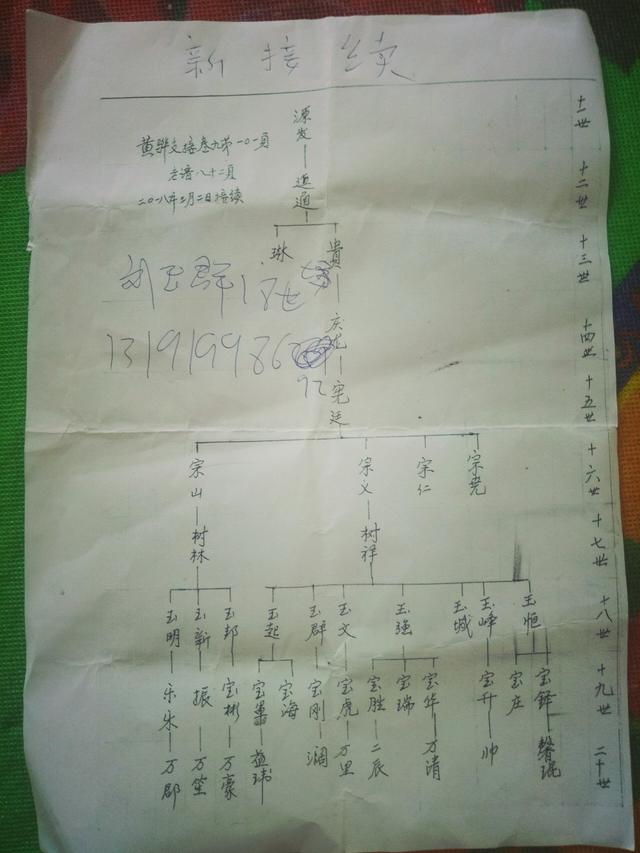 新接续
十一世
十二世
十三世
十四世
十五世
十六世
十七世
十八世
十九世
二十世
源发
通
黄骅支接叁九第一〇一页
老谱八十二页
二〇一八年二月二日接续
贵
琳
刘玉群18世
131919986
92
宪廷
宗尧
宗仁
宗义
宗山
树祥
树林
玉恒
玉峰
玉城
玉强
玉文
玉群
玉起
玉邦
玉新
玉明
宝铎
宝庄
宝升
宝华
宝瑞
宝胜
宝虎
宝刚
宝海
宝
宝彬
振
乐朱
帅
万清
二辰
万里
润
益玮
万豪
万笙
万郡